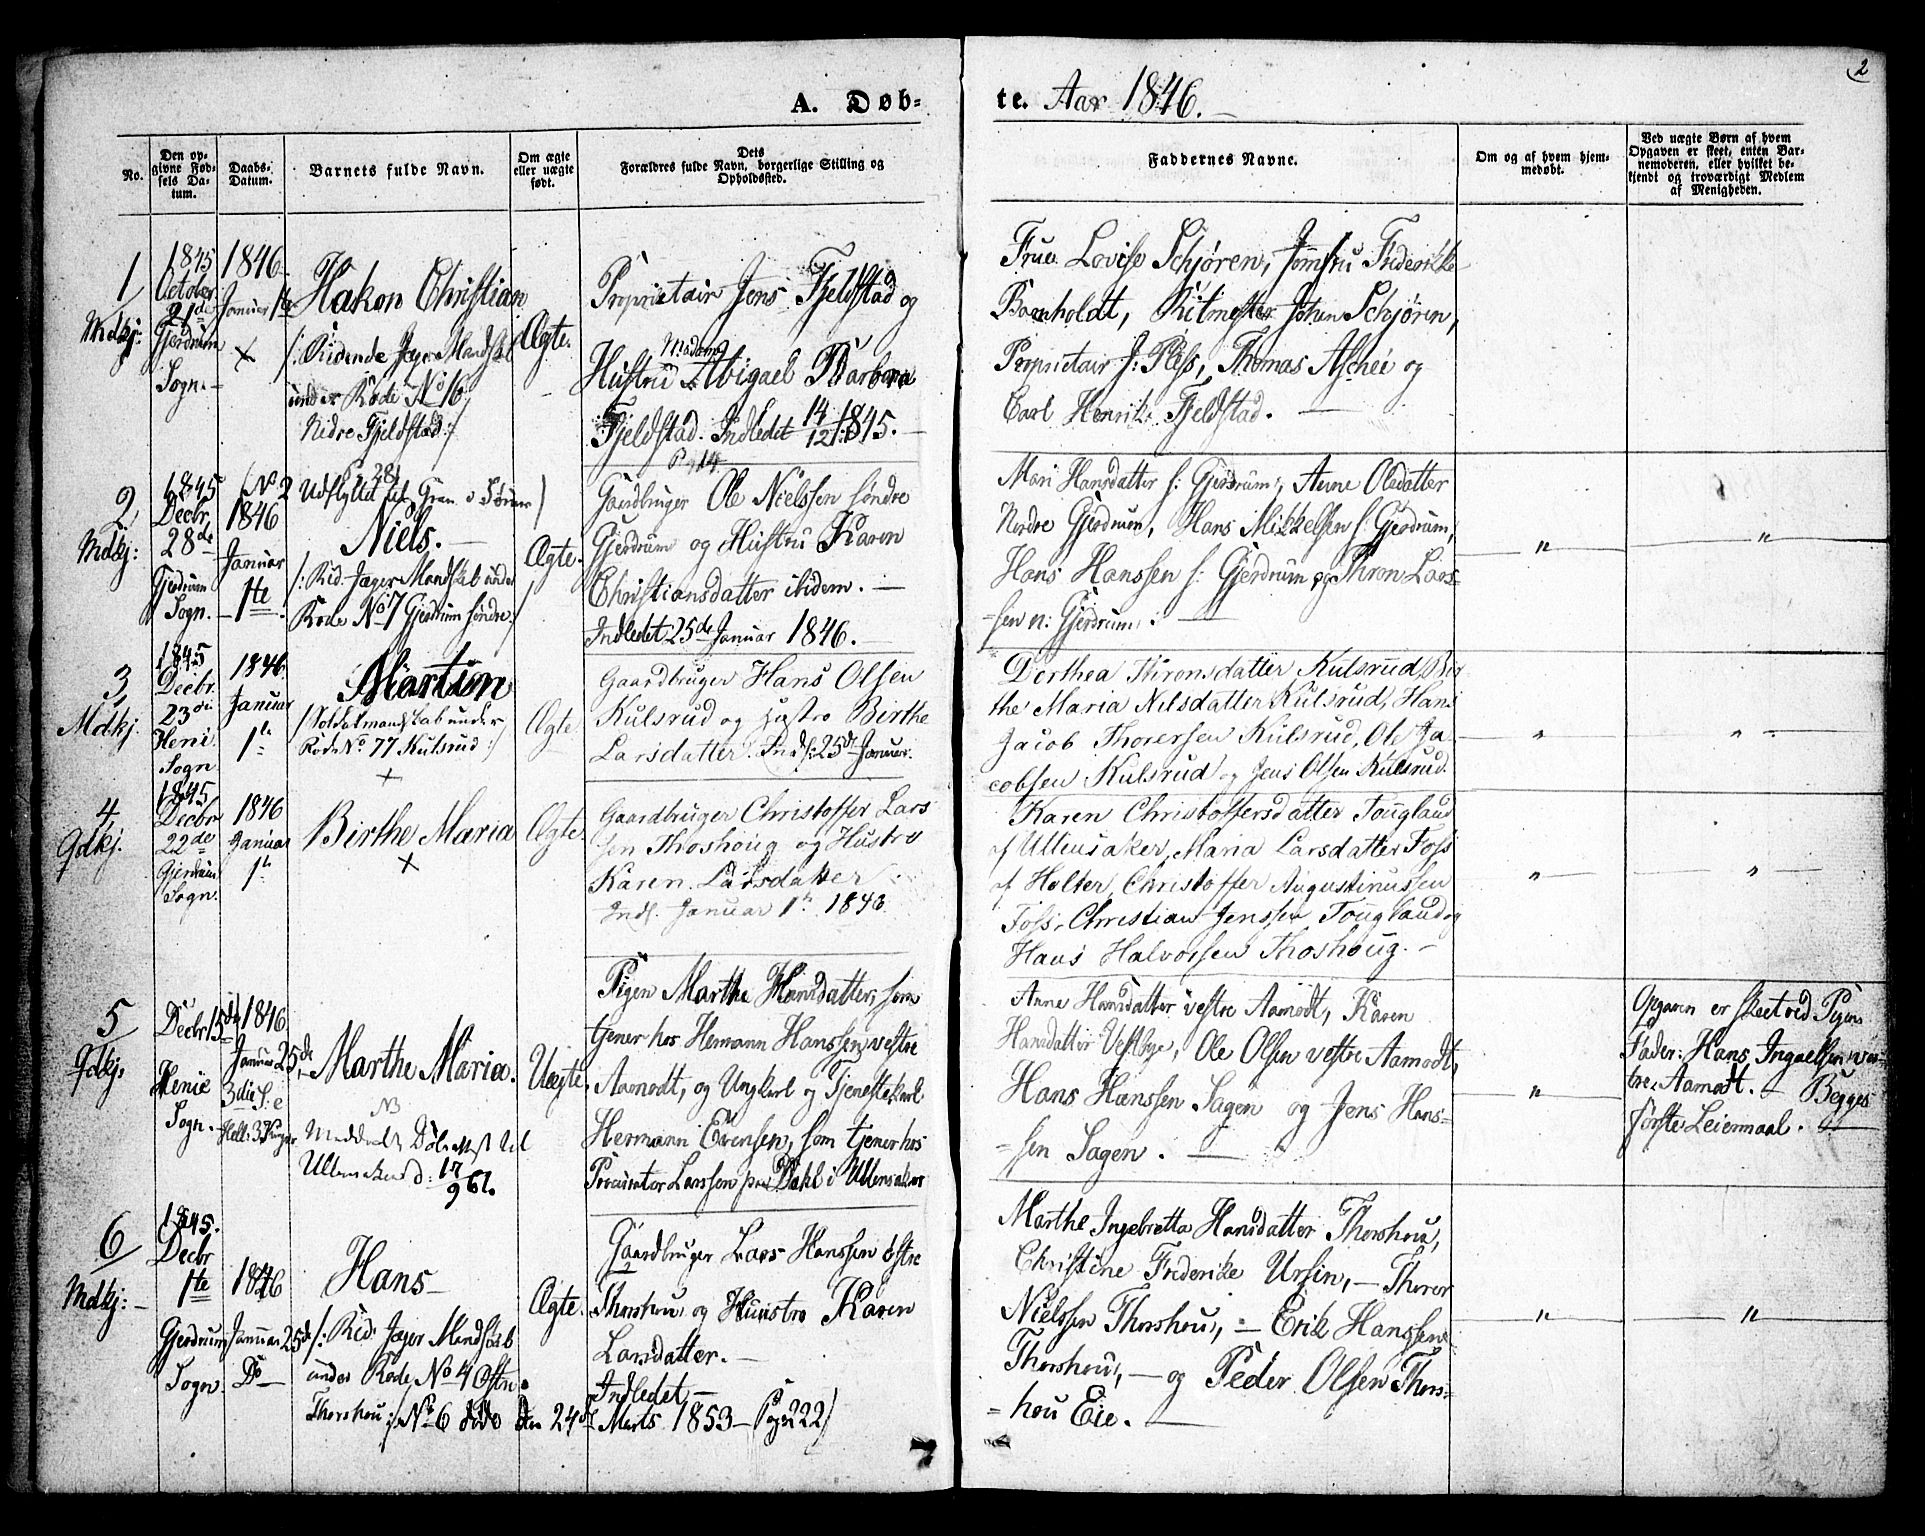 2
A. Døb-
te. Aar 1846.
No.
Den op-
givne Fød-
sels Da-
tum.
Daabs-
Datum.
Barnets fulde Navn.
Om ægte
eller uægte
født.
Dets
Forældres fulde Navn, borgerlige Stilling og
Opholdssted.
Faddernes Navne.
Om og af hvem hjem-
medøbt.
Ved uægte Børn af hvem
Opgaven er skeet, enten Bar-
nemoderen, eller hvilket be-
kjendt og troværdigt Medlem
af Menigheden.
1
Mdkj:
1845
October
21de
Gjerdrum
Sogn.
1846
Januar 1te
Hakon Christian
/: Ridende Jæger Mandskab
under Rode No 16
Nedre Fjeldstad :/
Ægte.
Proprietair Jens Fjeldstad og
Madame
Hustru Abigael Barbara
Fjeldstad. Indledet 14/12 1845.
Frue Lovise Schjøren, Jomfru Frederikke
Bomholdt, Ritmester Johan Schjøren,
Proprietair J: Pless, Thomas Aschee og
Carl Henrik Fjeldstad.
2
Mdkj:
1845
Decbr
28de
Gjerdrum
Sogn.
(No 2
1846
Januar
1te
P 281
Udflyttet til Gran
Niels.
/: Rid. Jæger Mandskab under
Rode No 7 Gjerdrum søndre :/
Ægte.
Pag 14
Gaardbruger Ole Nielssen søndre
Gjerdrum og Hustru Karen
Christiansdatter ibidem.
Indledet 25de Januar 1846.
Mari Hansdatter s: Gjerdrum, Anne Olsdatter
Nordre Gjerdrum, Hans Mikkelsen s: Gjerdrum,
Hans Hanssen s: Gjerdrum og Thron Lars-
-sen n: Gjerdrum.
"
"
3
Mdkj.
1845
Decbr.
23de
Heni
Sogn
1846
Januar
1te
Martin
/Soldatmandskab under
Rode No 77 Kulsrud :/
Ægte
Gaardbruger Hans Olsen
Kulsrud og Hustro Birthe
Larsdatter. Ind. s: 25de Januar.
Dorthea Thronsdatter Kulsrud, Bir
the Maria Nilsdatter Kulsrud, Hans
Jacob Thorersen Kulsrud, Ole Ja
cobsen Kulsrud og Jens Olsen Kulsrud.
"
"
4
Gdkj.
1845
Decbr
22de
Gjerdrum
Sogn.
1846
Januar
1te
Birthe Maria
Ægte
Gaardbruger Christoffer Lars
sen Thoshoug og Hustro
Karen Larsdatter
Indl. Januar 1te 1846
Karen Christoffersdatter Fougland
af Ullensaker, Maria Larsdatter Foss
af Holter, Christoffer Augustinussen
Foss, Christian Jenssen Fougland og
Hans Halvorsen Thoshoug.
"
"
5
Gdkj.
Decbr 15de
Henie
Sogn.
1846
Januar 25de,
3die S: e
Hell: 3 Konger
Marthe Maria.
NB
Meddelt Døbeattest til
Ullensaker d: 17/9 61.
Uægte
Pigen Marthe Hansdatter, som
tjener hos Hermann Hanssen vestre
Aamodt, og Ungkarl og Tjenestekarl
Hermann Evensen, som tjener hos
Procurator Larssen paa Dahl i Ullensaker
Anne Hansdatter vestre Aamodt, Karen
Hansdatter Vestbye, Ole Olsen vestre Aamodt,
Hans Hanssen Sagen og Jens Hans-
-sen Sagen.
"
Opgaven er skeet ved Pigens
Fader: Hans Ingaelssen ves-
tre Aamodt. Begges
første Leiermaal.
6
Mdkj:
1845.
Decbr
1te
Gjerdrum
Sogn
1846
Januar 25de
Do
Hans
/: Rid: Jæger Mandskab
under Rode No 4 Østre
Thorshou :/ No 6 døde den 24de Marts 1853 (Pag 222)
Ægte.
Gaardbruger Lars Hanssen østre
Thorshou, og Huustro Karen
Larsdatter.
Indledet,
Marthe Ingebretta Hansdatter Thorshou,
Christine Frederike Ursin, Thorer
Nielssen Thorshou, Erik Hanssen
Thorshou, og Peder Olsen Thors-
-hou Eie.
"
"